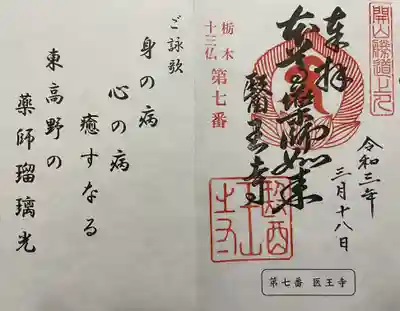 開山勝道上人
奉拝
令和三年
三月十八日
本尊薬師如来
醫王寺
栃木
十三仏 第七番
第七番 医王寺
ご詠歌
身の病
心の病
癒すなる
東高野の
薬師瑠璃光